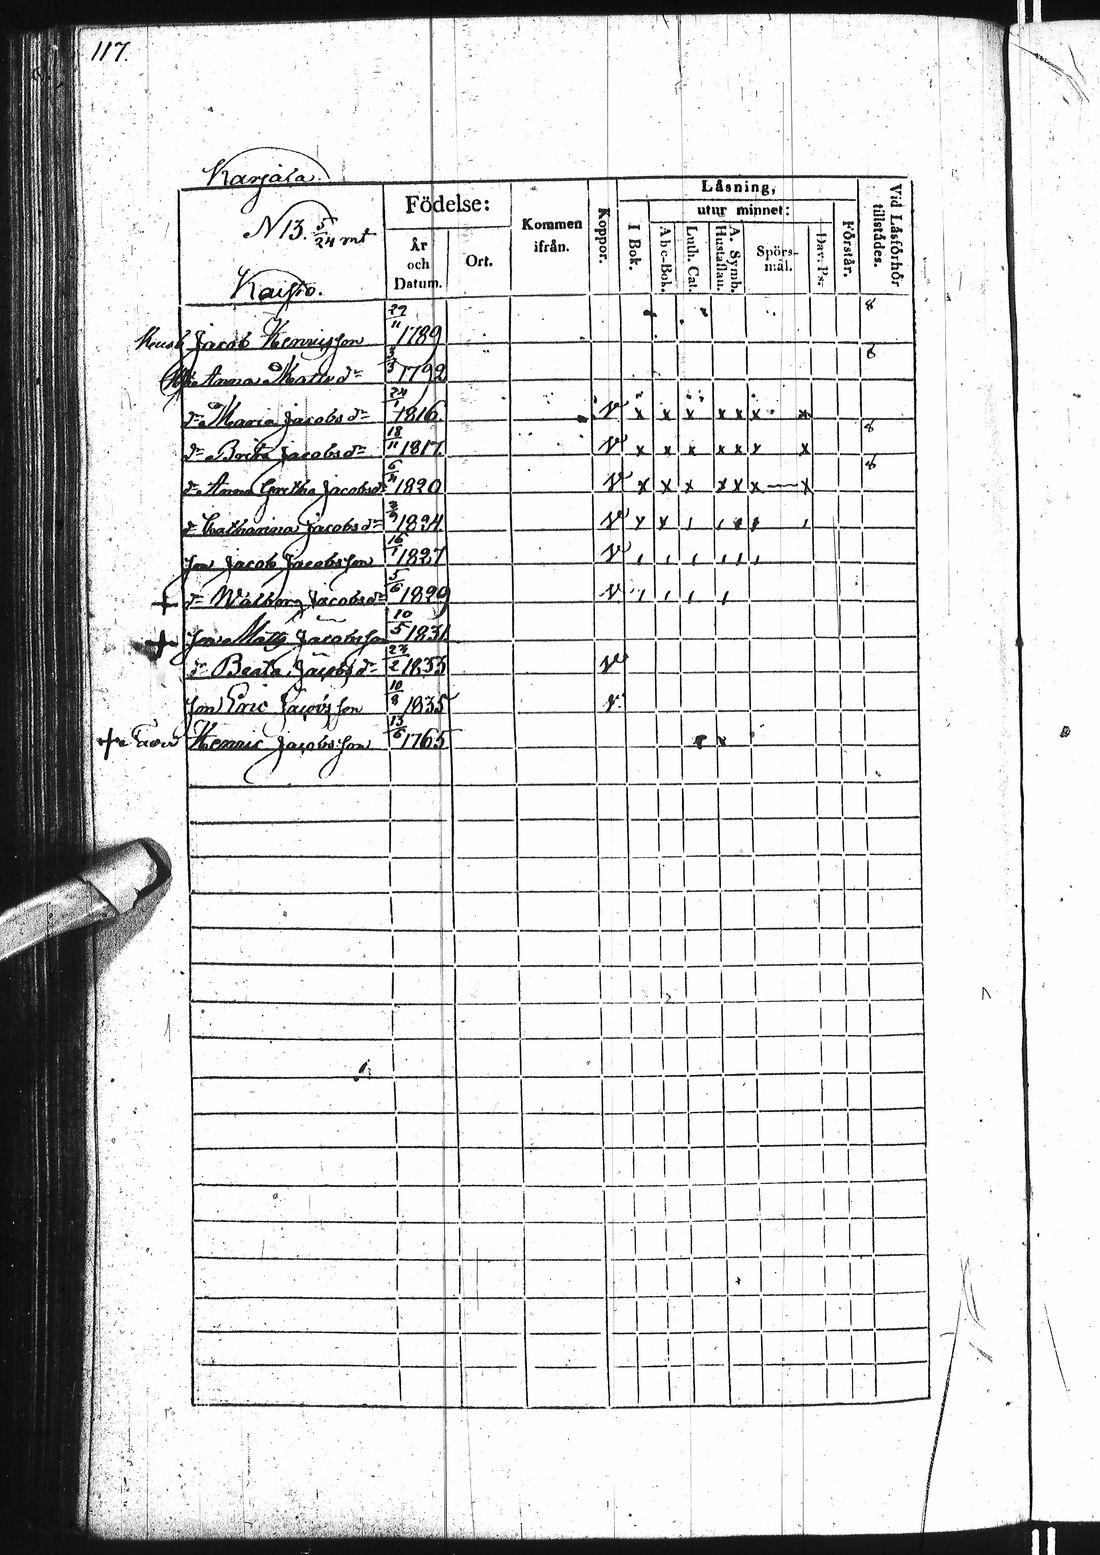 117.
Karjala.
N 13. 5/24 mt
Födelse:
Kommen ifrån.
Koppor.
Läsning,
utur minnet:
I Bok.
Abc-Bok.
Luth. Cat.
A. Symb. Hustaflan.
Spörs-mål.
Dav. Ps.
Förstår.
Vid Läsförhör tillstädes.
År och Datum.
Ort.
Jacob Henricsson 29/11 1789 8
Anna Matts dr 3/3 1792 8
dr Maria Jacobs dr 24/1 1816 v x x x x x x x
dr Brita Jacobs dr 18/11 1817 v x x x x x x x 8
dr Anna Gretha Jacobsdr 6/4 1820 v x x x x x x x 8
dr Catharina Jacobs dr 1824 v
son Jacob Jacobsson 16/1 1827 v
+ dr Walborg Jacobsdr 5/6 1829 v
+ son Matts Jacobsson 10/5 1831
dr Beata Jacobs dr 23/2 1833 v
son Eric Jacobsson 10/8 1835 v
+ Henric Jacobsson 13/6 1765